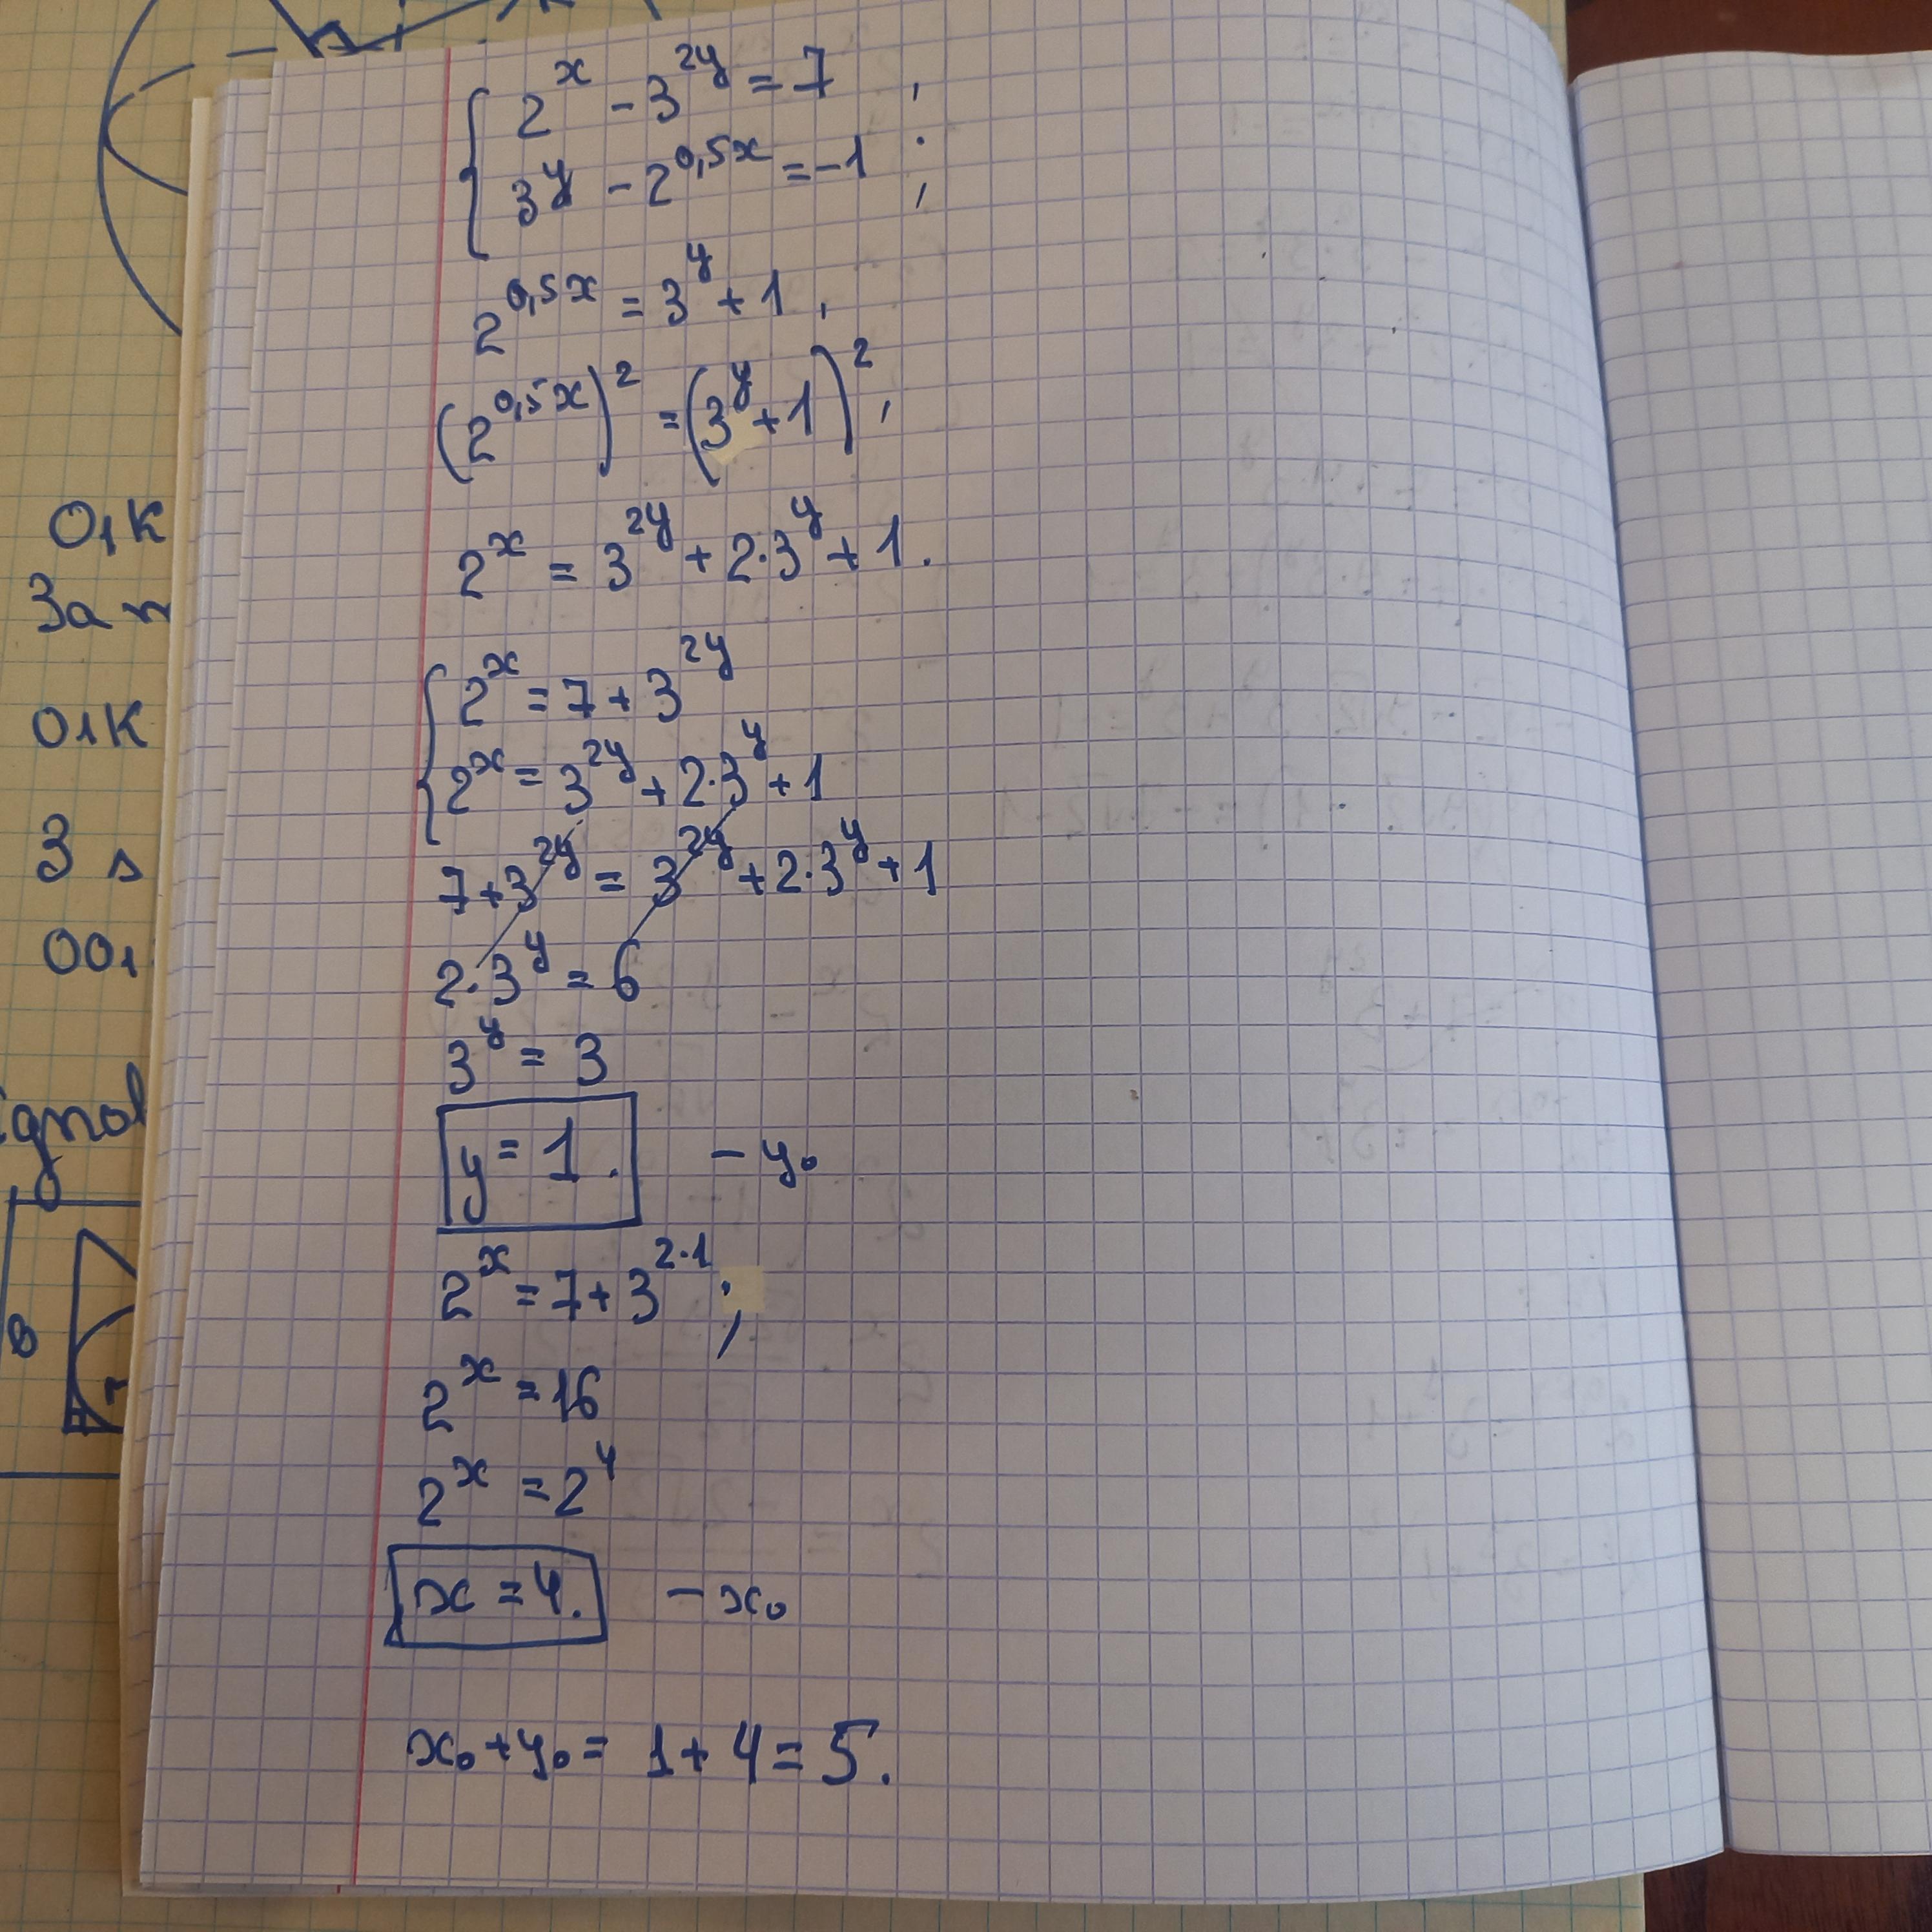 2^x - 3^{2y} = 7 ,
3^y - 2^{0,5x} = -1 ;
2^{0,5x} = 3^y + 1 ,
(2^{0,5x})^2 = (3^y + 1)^2 ,
2^x = 3^{2y} + 2·3^y + 1 .
2^x = 7 + 3^{2y}
2^x = 3^{2y} + 2·3^y + 1
7 + 3^{2y} = 3^{2y} + 2·3^y + 1
2·3^y = 6
3^y = 3
y = 1. - y₀
2^x = 7 + 3^{2·1} ;
2^x = 16
2^x = 2^4
x = 4. - x₀
x₀ + y₀ = 1 + 4 = 5.
О₁К
О₁К